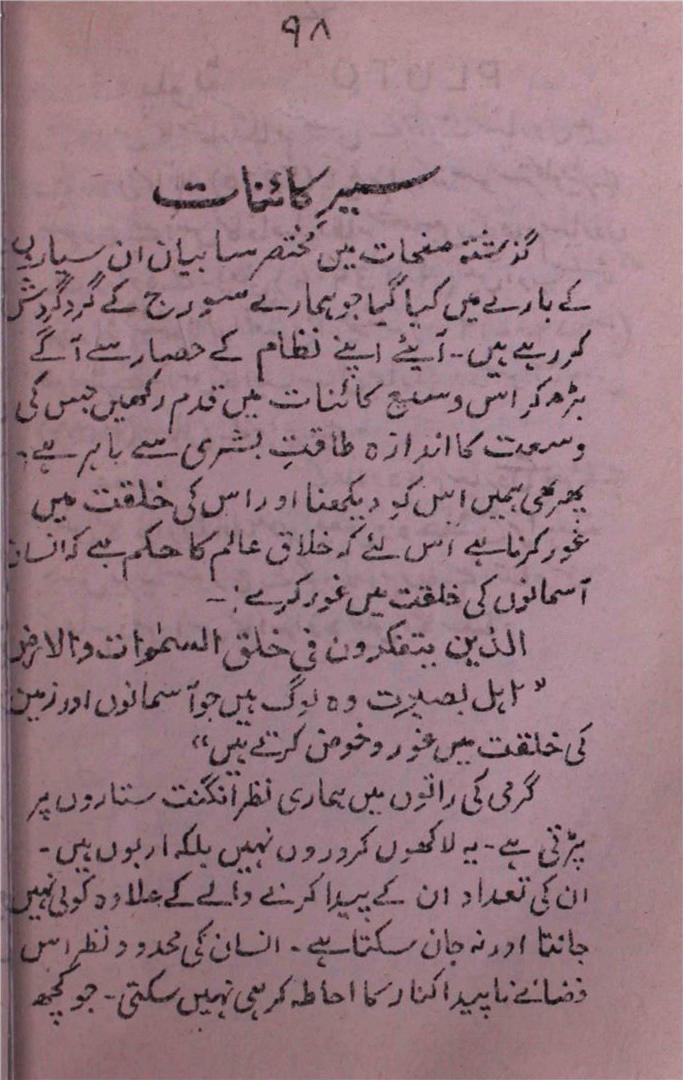 ۹۸
سیرِ کائنات
گذشتہ صفحات میں مختصر سا بیان ان سیاروں
کے بارے میں کیا گیا جو ہمارے سورج کے گرد گردش
کر رہے ہیں۔ آیئے اپنے نظام کے حصار سے آگے
بڑھ کر اس وسیع کائنات میں قدم رکھیں جس کی
وسعت کا اندازہ طاقتِ بشری سے باہر ہے۔
پھر بھی ہمیں اس کو دیکھنا اور اس کی خلقت میں
غور کرنا ہے اس لئے کہ خلاق عالم کا حکم ہے کہ انسان
آسمانوں کی خلقت میں غور کرے :۔
الذین یتفکرون فی خلق السمٰوات والارض
"اہل بصیرت وہ لوگ ہیں جو آسمانوں اور زمین
کی خلقت میں غور و خوض کرتے ہیں"
گرمی کی راتوں میں ہماری نظر انگنت ستاروں پر
پڑتی ہے۔ یہ لاکھوں کروروں نہیں بلکہ اربوں ہیں۔
ان کی تعداد ان کے پیدا کرنے والے کے علاوہ کوئی نہیں
جانتا اور نہ جان سکتا ہے۔ انسان کی محدود نظر اس
فضائے ناپیدا کنار کا احاطہ کر ہی نہیں سکتی۔ جو کچھ